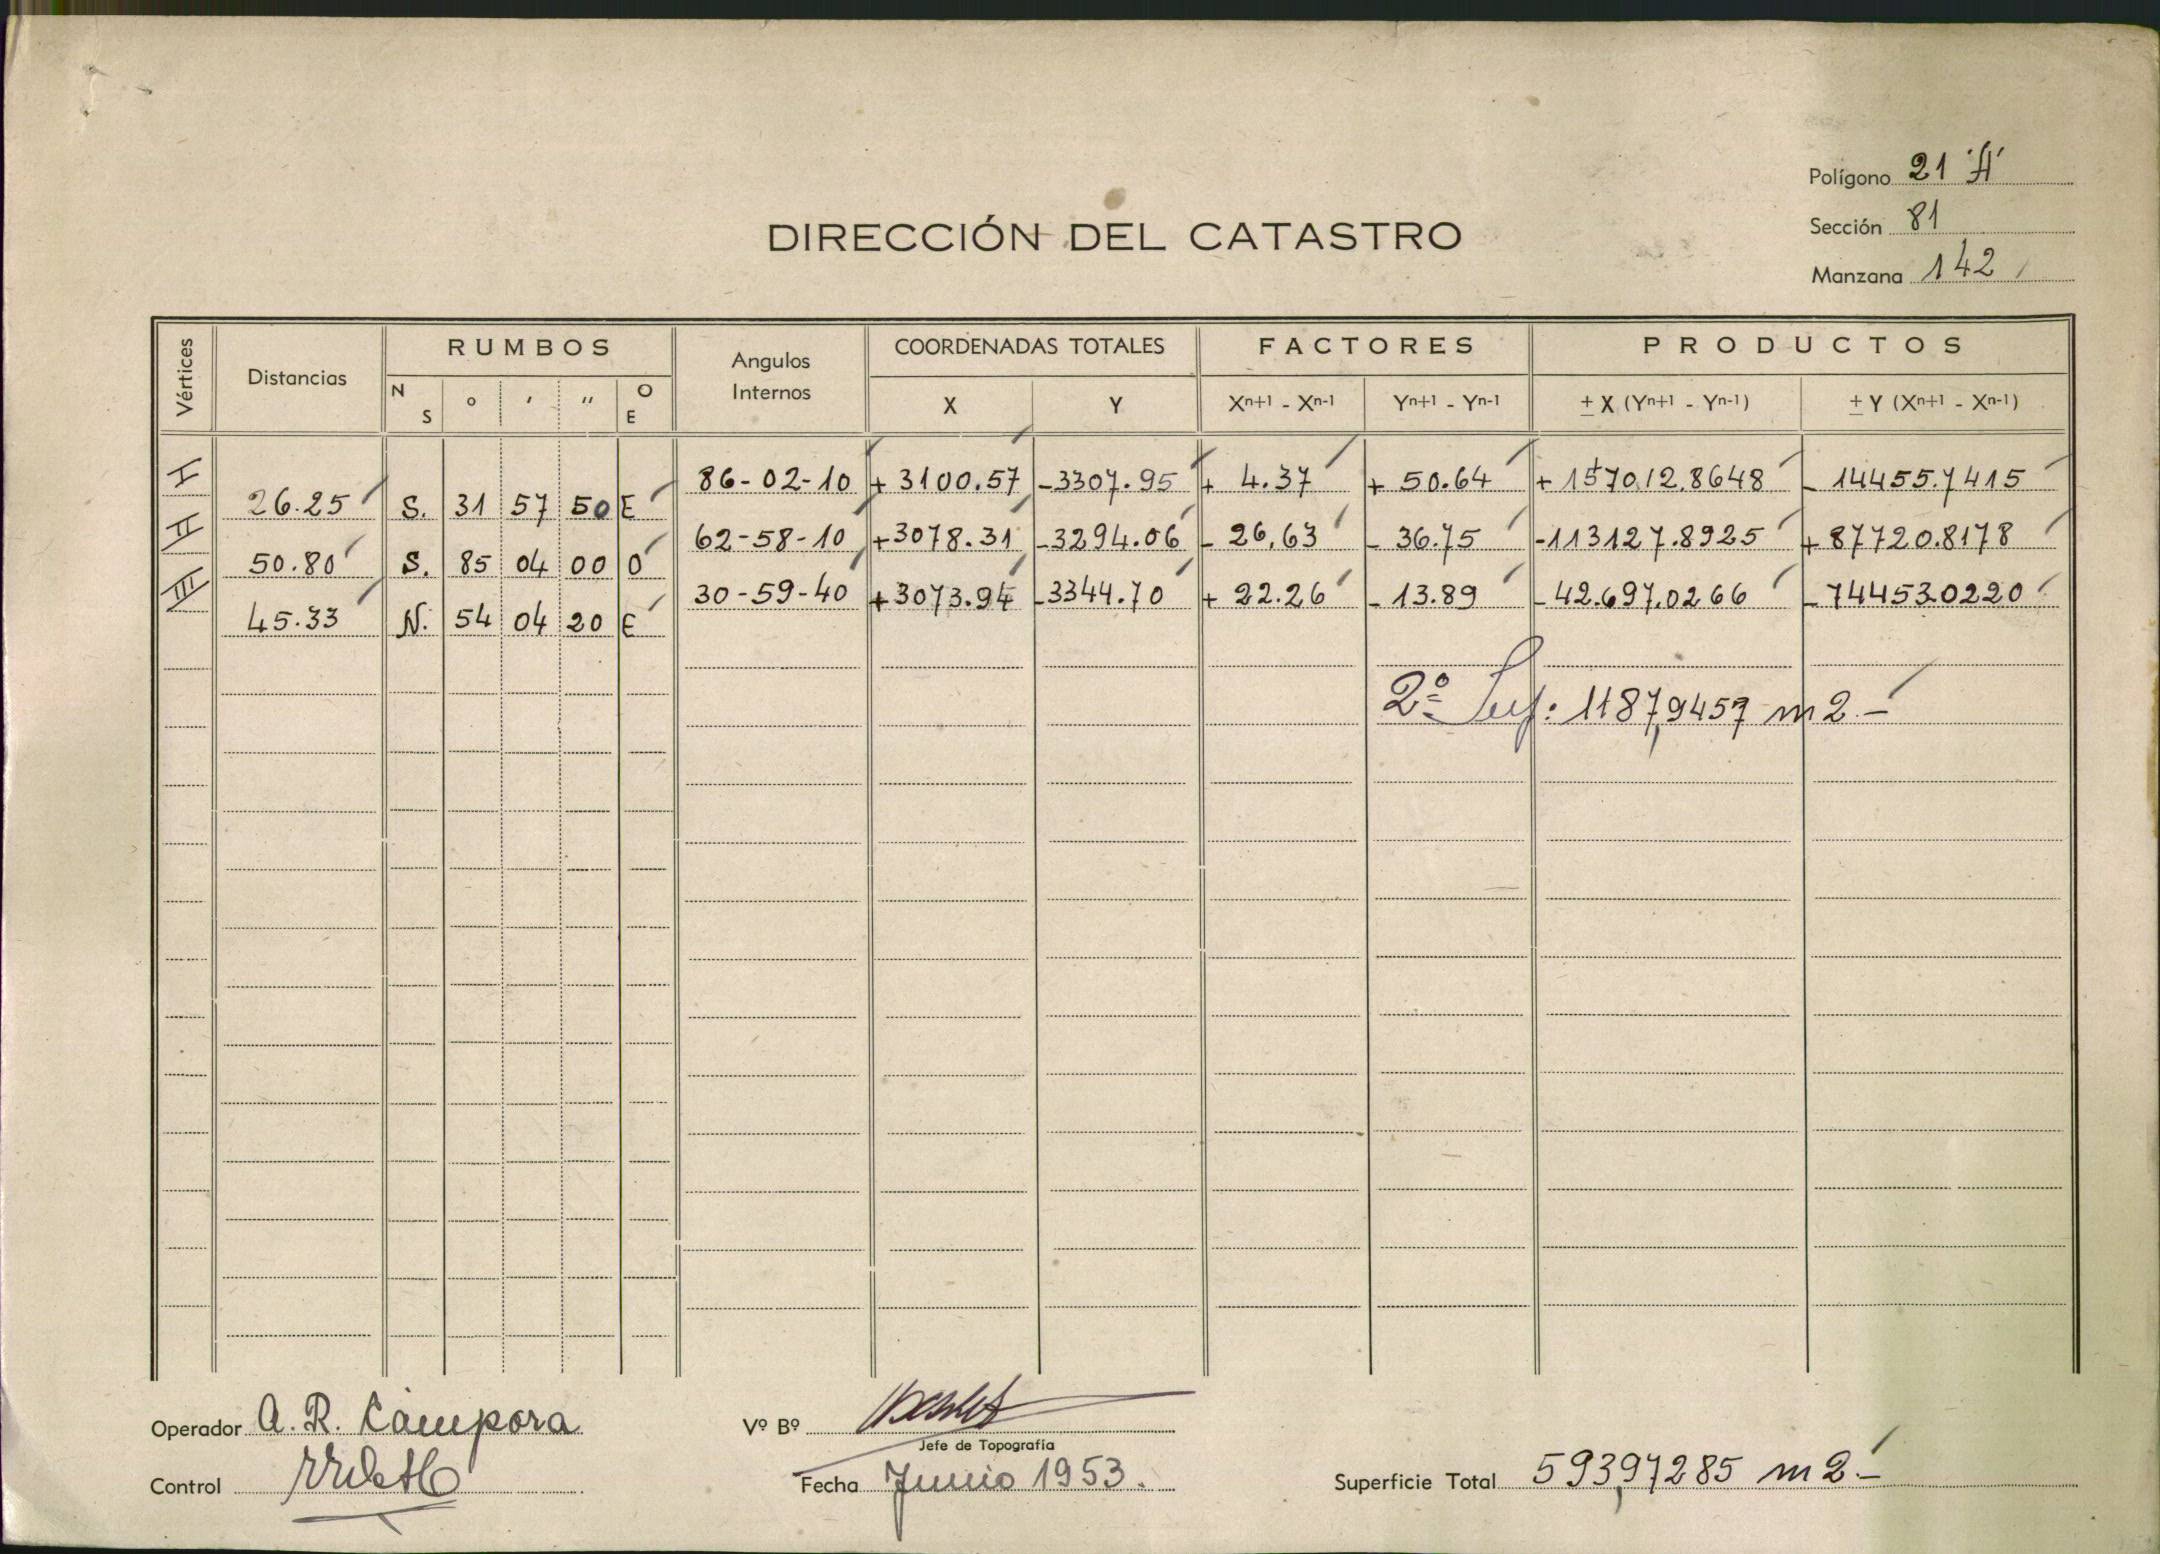 Polígono 21 "A"
Sección 81
Manzana 142
DIRECCIÓN DEL CATASTRO
Vértices Distancias RUMBOS Angulos Internos COORDENADAS TOTALES FACTORES PRODUCTOS
N S ° ' " O E X Y Xn+1 - Xn-1 Yn+1 - Yn-1 ± X (Yn+1 - Yn-1) ± Y (Xn+1 - Xn-1)
I 86-02-10 +3100.57 -3307.95 + 4.37 + 50.64 +157012.8648 - 14455.7415
26.25 S. 31 57 50 E
II 62-58-10 +3078.31 -3294.06 - 26,63 - 36.75 -113127.8925 + 87720.8178
50.80 S. 85 04 00 O
III 30-59-40 +3073.94 -3344.70 + 22.26 - 13.89 - 42.697.0266 - 74453.0220
45.33 N. 54 04 20 E
2º Sup: 1187,9457 m2.-
Operador A. R. Cámpora Vº Bº
Jefe de Topografía
Control Fecha Junio 1953. Superficie Total 593,97285 m2.-